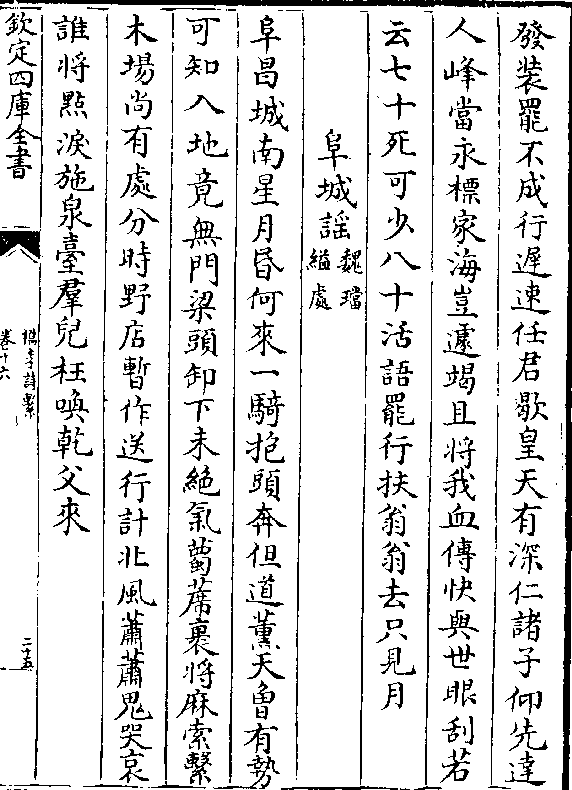 發装罷不成行遲速任君歇皇天有深仁諸子仰先達
人峰當永標家海豈遽竭且將我血傳快與世眼刮若
云七十死可少八十活語罷行扶翁翁去只見月
阜城謡魏璫縊處
阜昌城南星月昏何來一騎抱頭奔但道薰天曾有勢
可知入地竟無門梁頭卸下未絶氣蔔蓆裹將麻索繫
木場尚有處分時野店暫作送行計北風蕭蕭鬼哭哀
誰將㸃淚施泉臺羣兒枉喚乾父來
欽定四庫全書
檇李詩繫
卷十六
二十五